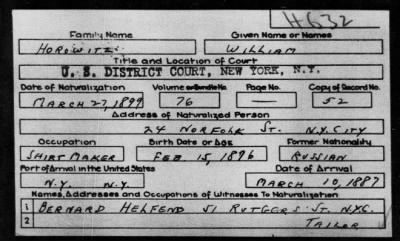 H632
Family Name Given Name or Names
HOROWITZ WILLIAM
Title and Location of Court
U. S. DISTRICT COURT, NEW YORK, N.Y.
Date of Naturalization Volume or Bundle No. Page No. Copy of Record No.
MARCH 27, 1899 76 — 52
Address of Naturalized Person
24 NORFOLK ST. N.Y. CITY
Occupation Birth Date or Age Former Nationality
SHIRT MAKER FEB. 15, 1876 RUSSIAN
Port of Arrival in the United States Date of Arrival
N.Y. N.Y. MARCH 10, 1887
Names, Addresses and Occupations of Witnesses To Naturalization
1 BERNARD HELFEND 51 RUTGERS ST. N.Y.C.
2 TAILOR